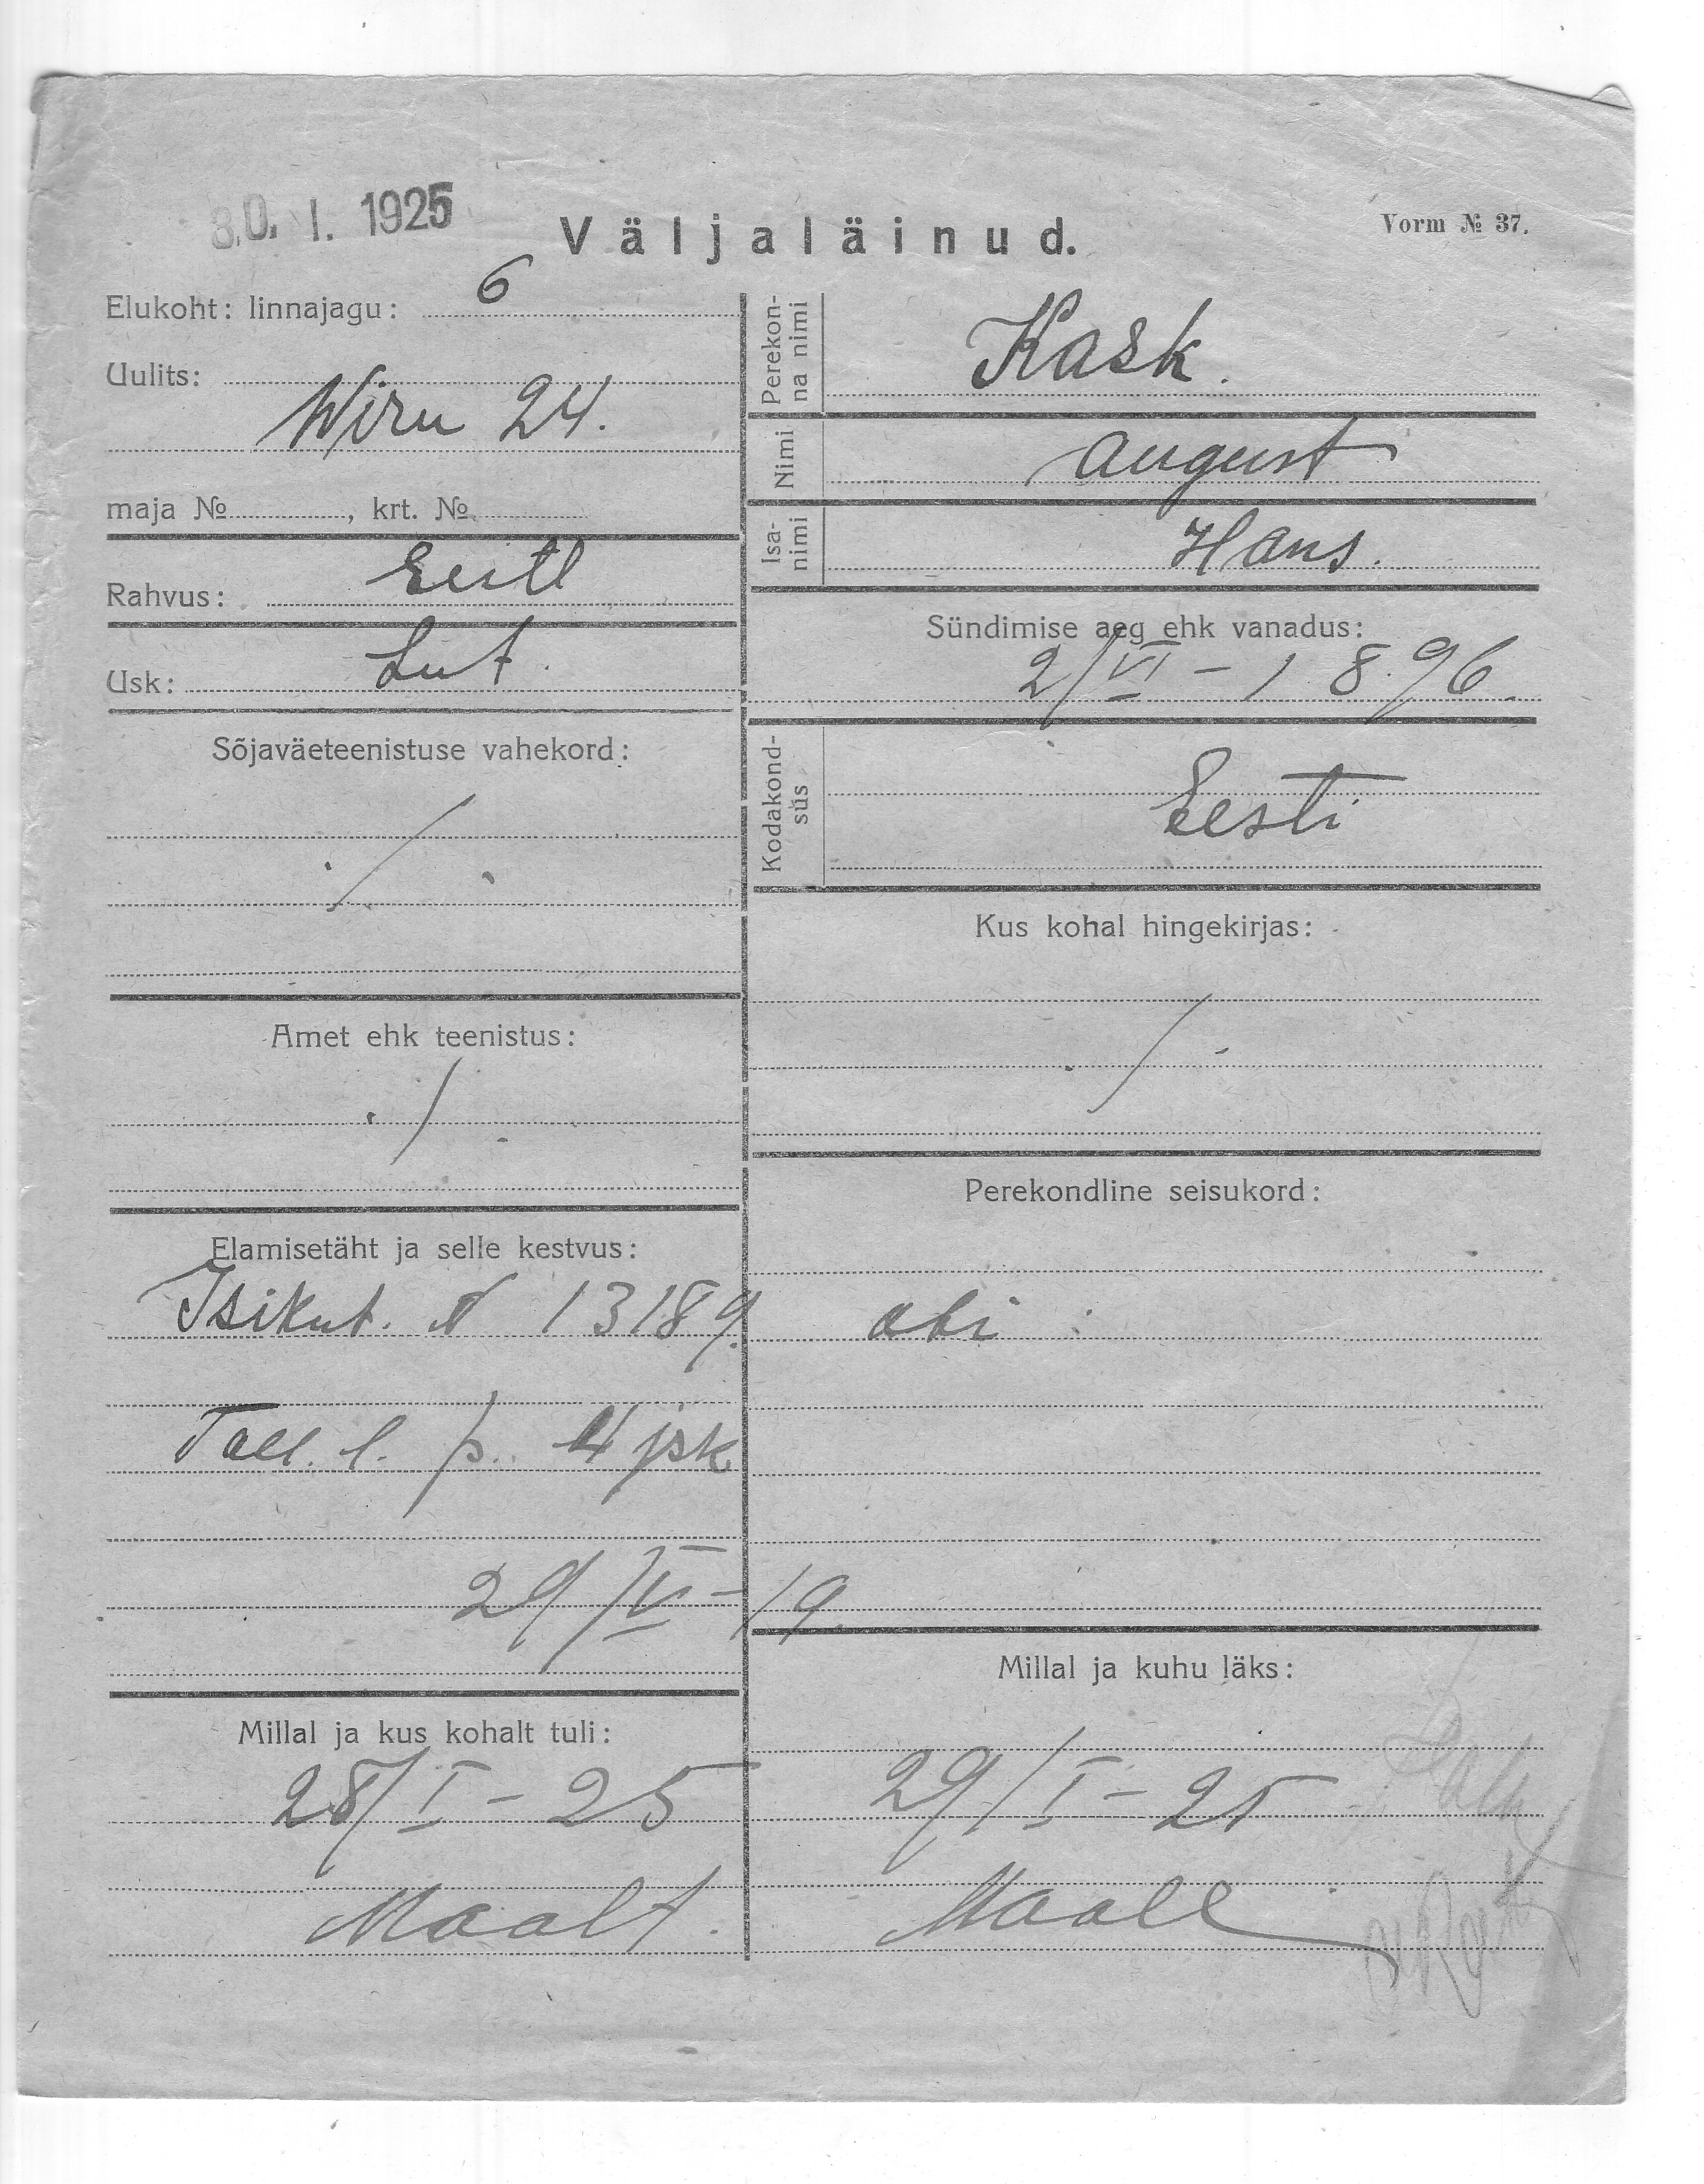 30. I. 1925
Väljaläinud.
Vorm № 37.
Elukoht: linnajagu: 6
Uulits:
Wiru 24.
maja № , krt. №
Rahvus: Eesti
Usk: Lut.
Sõjaväeteenistuse vahekord:
Amet ehk teenistus:
Elamisetäht ja selle kestvus:
Isikut. N 13189.
Tall. l. p. 4 jsk
29/IV-19.
Millal ja kus kohalt tuli:
28/I-25
Maalt.
Perekon-
na nimi
Kask.
Nimi
August
Isa-
nimi
Hans.
Sündimise aeg ehk vanadus:
2/VI-1896.
Kodakond-
sus
Eesti
Kus kohal hingekirjas:
Perekondline seisukord:
abi
Millal ja kuhu läks:
29/I-25
Maale